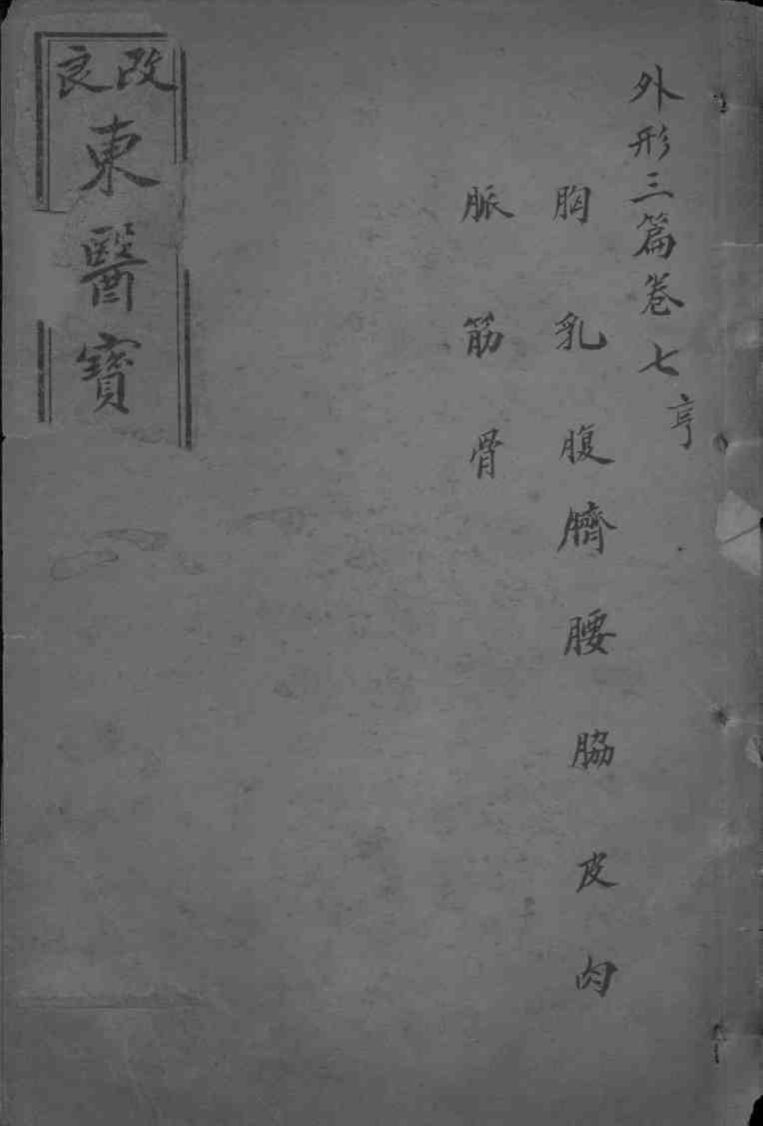 外形三篇卷七 亨
胸 乳 腹 臍 腰 脇 皮 肉
脈 筋 骨
改良
東醫寶